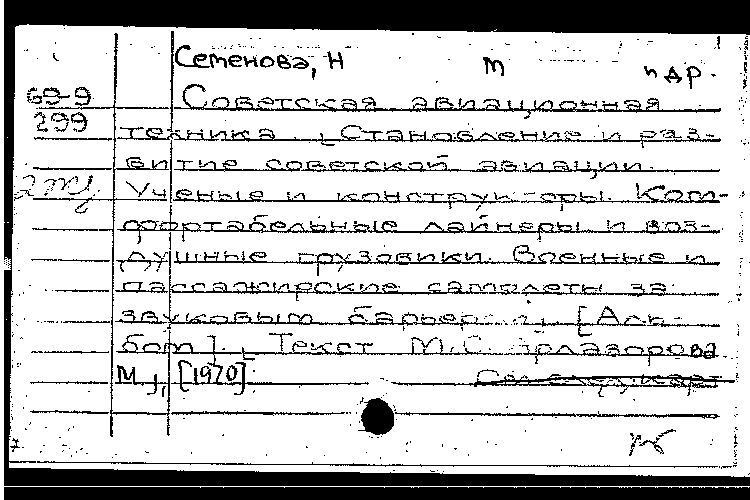 Семенова, Н М и др.
69-9 Советская авиационная
299 техника. Становление и раз-
витие советской авиации.
Ученые и конструкторы. Ком-
фортабельные лайнеры и воз-
душные грузовики. Военные и
пассажирские самолеты за
звуковым барьером. [Аль-
бом]. Текст М.С. Арлазорова
М., [1970].